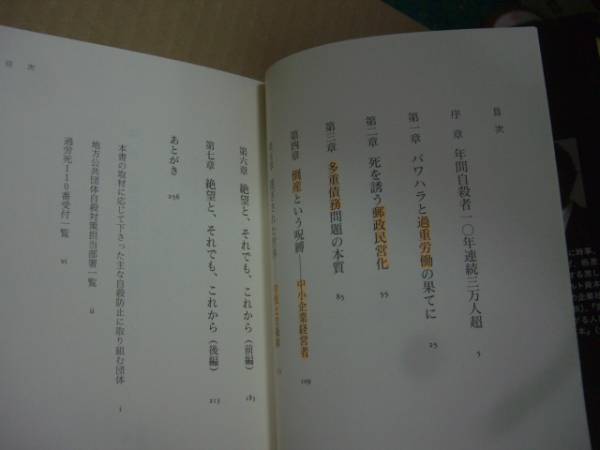 目次
序章 年間自殺者一〇年連続三万人超 5
第一章 パワハラと過重労働の果てに 25
第二章 死を誘う郵政民営化 55
第三章 多重債務問題の本質 85
第四章 倒産という呪縛──中小企業経営者 109
第六章 絶望と、それでも、これから（前編） 183
第七章 絶望と、それでも、これから（後編） 213
あとがき 256
本書の取材に応じて下さった主な自殺防止に取り組む団体 i
地方公共団体自殺対策担当部署一覧 ii
過労死110番受付一覧 vi
目次